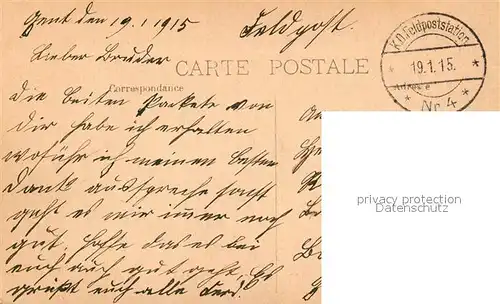 Gent den 19.1.1915
Feldpost.
K.D. Feldpoststation
19.1.15.
Nr. 4
Lieber Bruder
CARTE POSTALE
Correspondance
Adresse
Die beiten Packete von
dir habe ich erhalten
woführ ich meinen besten
Dank ausspreche sonst
geht es mir immer noch
gut, hoffe das es bei
euch auch gut geht. Es
grüßt euch alle
privacy protection
Datenschutz